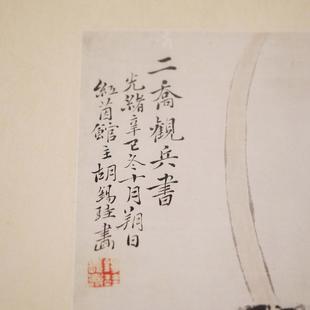 二喬觀兵書
光緒辛巳冬十月朔日
紅茵館主胡錫珪畫